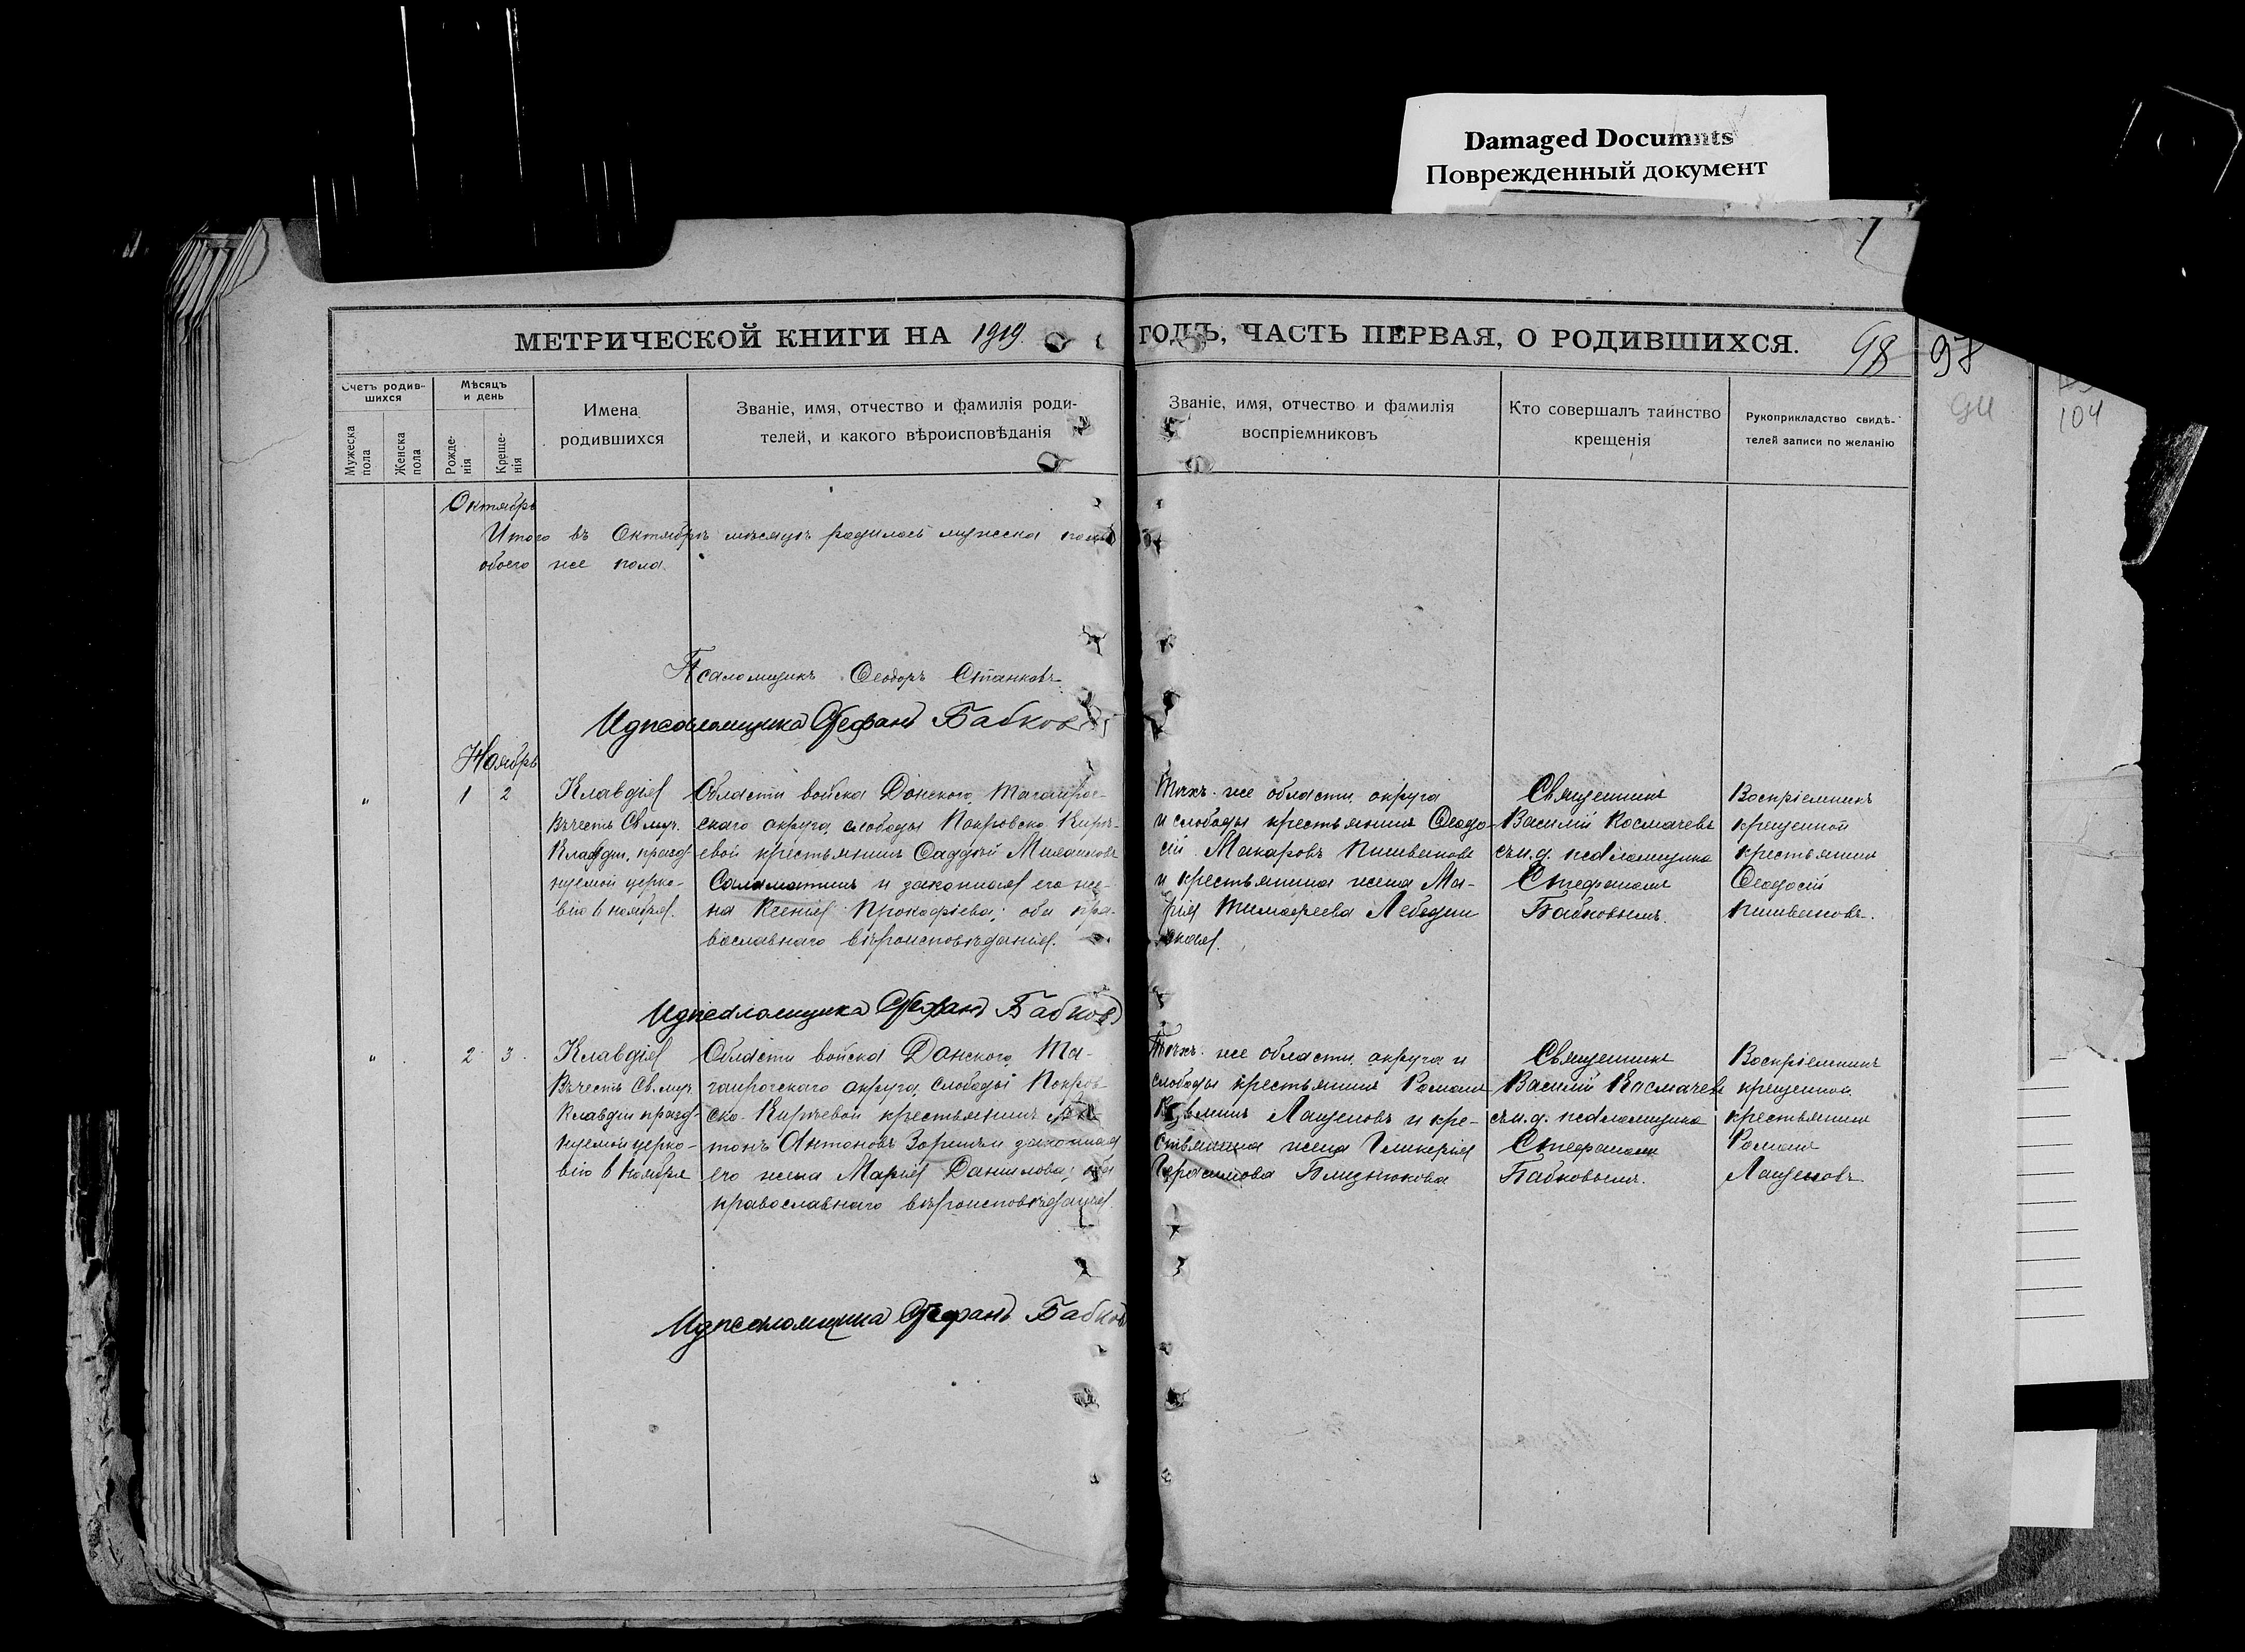 Damaged Documnts
Поврежденный документ
МЕТРИЧЕСКОЙ КНИГИ НА 1919 ГОДЪ, ЧАСТЬ ПЕРВАЯ, О РОДИВШИХСЯ.
98
98
94
104
Счетъ родив-
шихся
Мужеска
пола
Женска
пола
Мѣсяцъ
и день
Рожде-
нія
Креще-
нія
Имена
родившихся
Званіе, имя, отчество и фамилія роди-
телей, и какого вѣроисповѣданія
Званіе, имя, отчество и фамилія
воспріемниковъ
Кто совершалъ таинство
крещенія
Рукоприкладство свидѣ-
телей записи по желанію
Октябрь
Итого въ Октябрѣ мѣсяцѣ родилось мужеска пола
обоего же пола
Псаломщикъ Ѳеодоръ Станковъ
И д псаломщика Стефанъ Бабковъ
Ноябрь
"
1
2
Клавдія
Въ честь Св. муч.
Клавдіи, празд-
нуемой церко-
вію 6 ноября.
Области войска Донского, Таганрог-
скаго округа, слободы Покровско-Кирѣ-
евой крестьянинъ Фаддей Миланновъ
Саламатинъ и законная его же-
на Ксенія Прокофіева; оба пра-
вославнаго вѣроисповѣданія.
Тѣхъ-же области, округа
и слободы крестьянинъ Ѳеодо-
сій Макаровъ Пишвановъ
и крестьянина жена Ма-
рія Тимофеева Лебедин
ская.
Священникъ
Василій Космачевъ
съ и. д. псаломщика
Стефаномъ
Бабковымъ.
Воспріемникъ
крещенной
крестьянинъ
Ѳеодосій
Пишвановъ.
И д псаломщика Стефанъ Бабковъ
"
2
3
Клавдія
Въ честь Св. муч.
Клавдіи празд-
нуемой церко-
вію 6 Ноября
Области войска Донского, Та-
ганрогскаго округа, слободы Покров-
ско-Кирѣевой крестьянинъ
тонъ Антоновъ и законная
его жена Марія Данилова; оба
православнаго вѣроисповѣданія.
Тѣхъ-же области, округа и
слободы крестьянинъ Романъ
Кузьминъ Лащеновъ и кре-
стьянина жена Гликерія
Герасимова Близнюкова
Священникъ
Василій Космачевъ
съ и. д. псаломщика
Стефаномъ
Бабковымъ.
Воспріемникъ
крещенной
крестьянинъ
Романъ
Лащеновъ
И д псаломщика Стефанъ Бабковъ